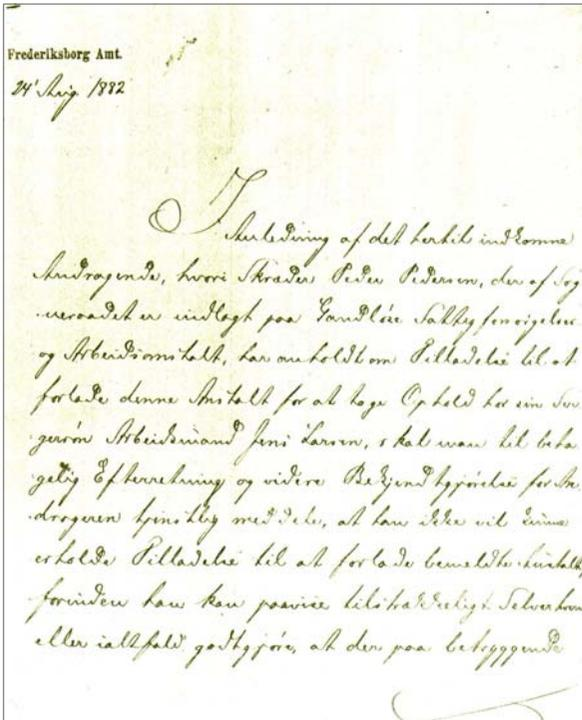 Frederiksborg Amt.
24' Aug. 1882
I
Anledning af det hertil indkomne
Andragende, hvori Skræder Peder Pedersen, der af Sog
neraadet er indlagt paa Gandløse Fattigforsørgelses
og Arbeidsanstalt, har anholdt om Tilladelse til at
forlade denne Anstalt for at tage Ophold hos sin
Arbeidsmand Jens Larsen, skal man til beha
gelig Efterretning og videre Bekjendtgjørelse for An
drageren tjenstlig meddele, at han ikke vil kunne
erholde Tilladelse til at forlade bemeldte Anstalt,
forinden han kan paavise tilstrækkeligt Selverhverv
eller ialtfald godtgjøre, at der paa betryggende